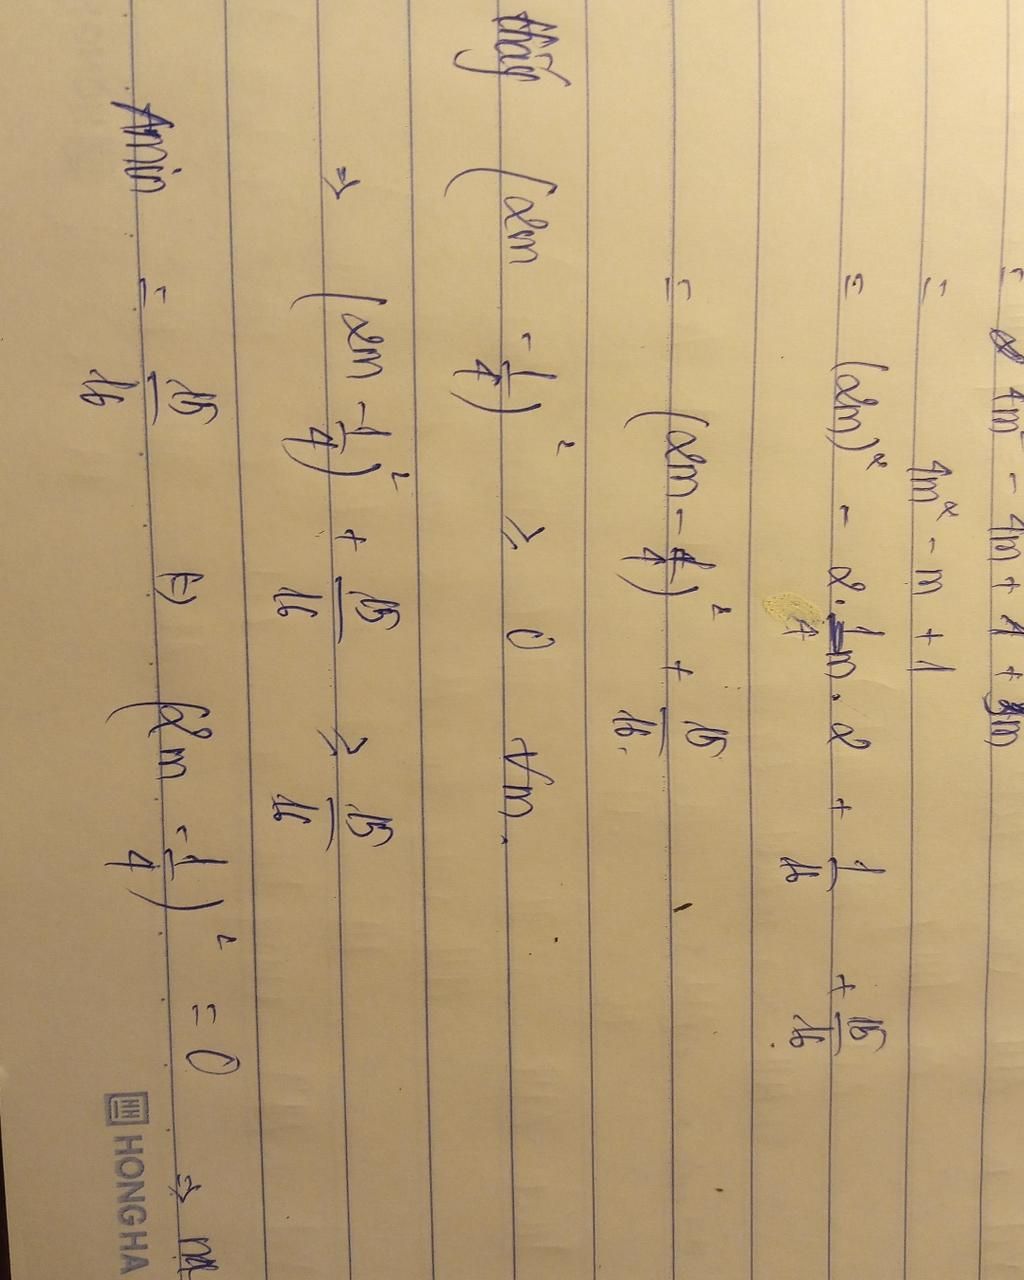 = 4m² - 4m + 1 + 3m
= 4m² - m + 1
= (2m)² - 2 . 1/4 m . 2 + 1/16 + 15/16
= (2m - 1/4)² + 15/16
thấy (2m - 1/4)² ≥ 0 ∀m.
⇒ (2m - 1/4)² + 15/16 ≥ 15/16
Amin = 15/16 (=) (2m - 1/4)² = 0 ⇒
HONG HA